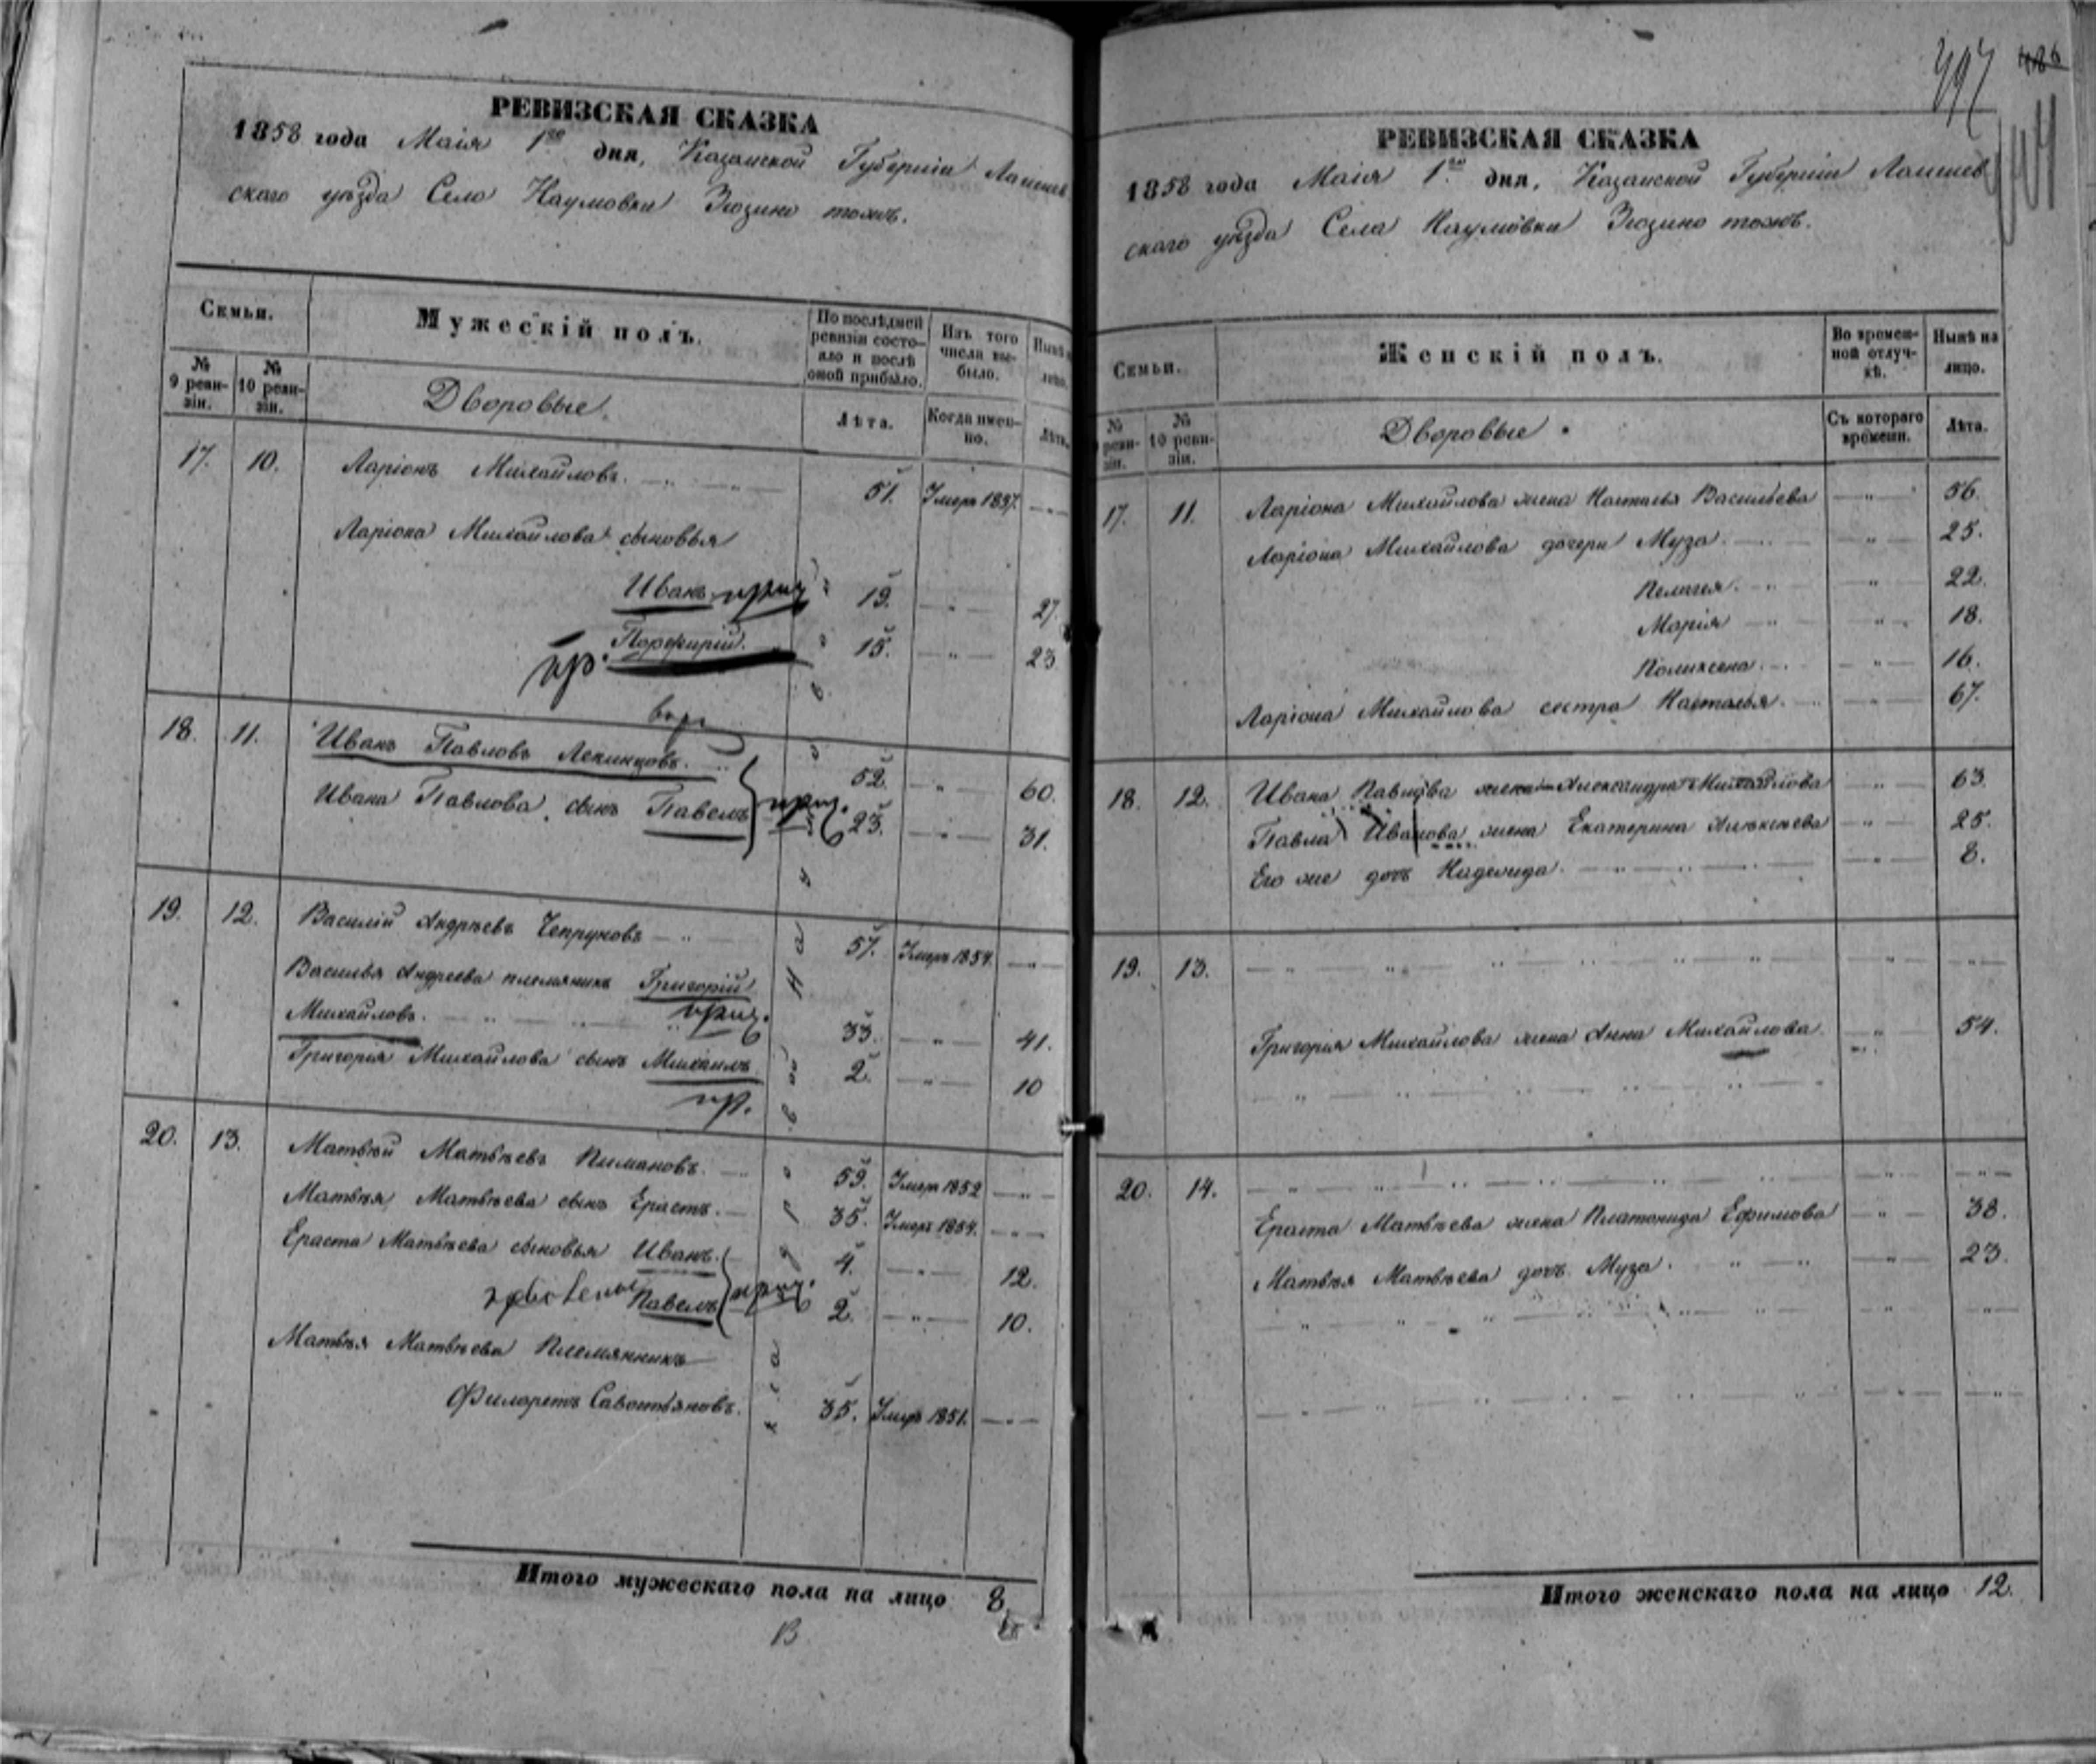 РЕВИЗСКАЯ СКАЗКА
1858 года Маія 1го дня, Казанской Губерніи Лаишев
скаго уѣзда Село Наумовки Зюзино тожъ.
Семьи.
Мужескій полъ.
По послѣдней ревизіи состояло и послѣ оной прибыло.
Изъ того числа выбыло.
Нынѣ на лицо.
№ 9 ревизіи.
№ 10 ревизіи.
Дворовые.
Лѣта.
Когда именно.
Лѣта.
17. 10. Ларіонъ Михайловъ. 51. Умеръ 1857.
Ларіона Михайлова сыновья
Иванъ 19. 27.
пр. Порфирій. 15. 23
18. 11. Иванъ Павловъ Лекинцовъ. 52. 60.
Ивана Павлова сынъ Павелъ 23. 31.
19. 12. Василій Андреевъ Чепруновъ 57. Умеръ 1854.
Василья Андреева племянникъ Григорій
Михайловъ. 33. 41.
Григорія Михайлова сынъ Михаилъ 2. 10
пр.
20. 13. Матвѣй Матвѣевъ Пимановъ. 59. Умеръ 1852
Матвѣя Матвѣева сынъ Ерастъ. 35. Умеръ 1854.
Ераста Матвѣева сыновья Иванъ. 4. 12.
Павелъ 2. 10.
Матвѣя Матвѣева Племянникъ
Филаретъ Савостьяновъ. 35. Умеръ 1851.
Итого мужескаго пола на лицо 8
В
497 426
РЕВИЗСКАЯ СКАЗКА
1858 года Маія 1го дня, Казанской Губерніи Лаишев
скаго уѣзда Села Наумовки Зюзино тожъ.
Семьи.
Женскій полъ.
Во временной отлучкѣ.
Нынѣ на лицо.
№ ревизіи.
№ 10 ревизіи.
Дворовые.
Съ котораго времени.
Лѣта.
17. 11. Ларіона Михайлова жена Наталья Васильева 56.
Ларіона Михайлова дочери Муза. 25.
Пелагея. 22.
Марія 18.
Поликсена. 16.
Ларіона Михайлова сестра Наталья. 67.
18. 12. Ивана Павлова жена Александра Михайлова 63.
Павла Иванова жена Екатерина Алексеева 25.
Его же дочь Надежда. 8.
19. 13.
Григорія Михайлова жена Анна Михайлова. 54.
20. 14.
Ераста Матвѣева жена Платонида Ефимова 38.
Матвѣя Матвѣева дочь Муза. 23.
Итого женскаго пола на лицо 12.